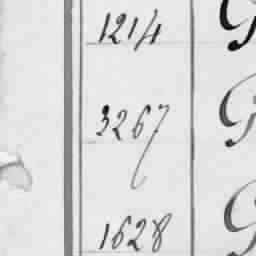 1214 G
3267 G
1628 G